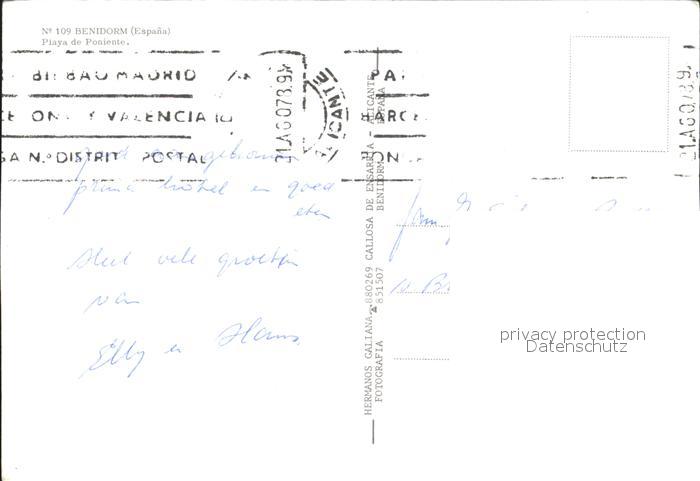 Nº 109 BENIDORM (España)
Playa de Poniente.
BILBAO MADRID
PA
Y VALENCIA
BARCE
SA N.º DISTRIT POSTAL
ON
21 AGO 78
ALICANTE
21 AGO 78
prima hotel en goed
eten
vele groetjes
van
Elly en Hans
HERMANOS GALIANA - 880269 CALLOSA DE ENSARRIA - ALICANTE
FOTOGRAFIA 851507 BENIDORM ESPAÑA
Fam
privacy protection
Datenschutz